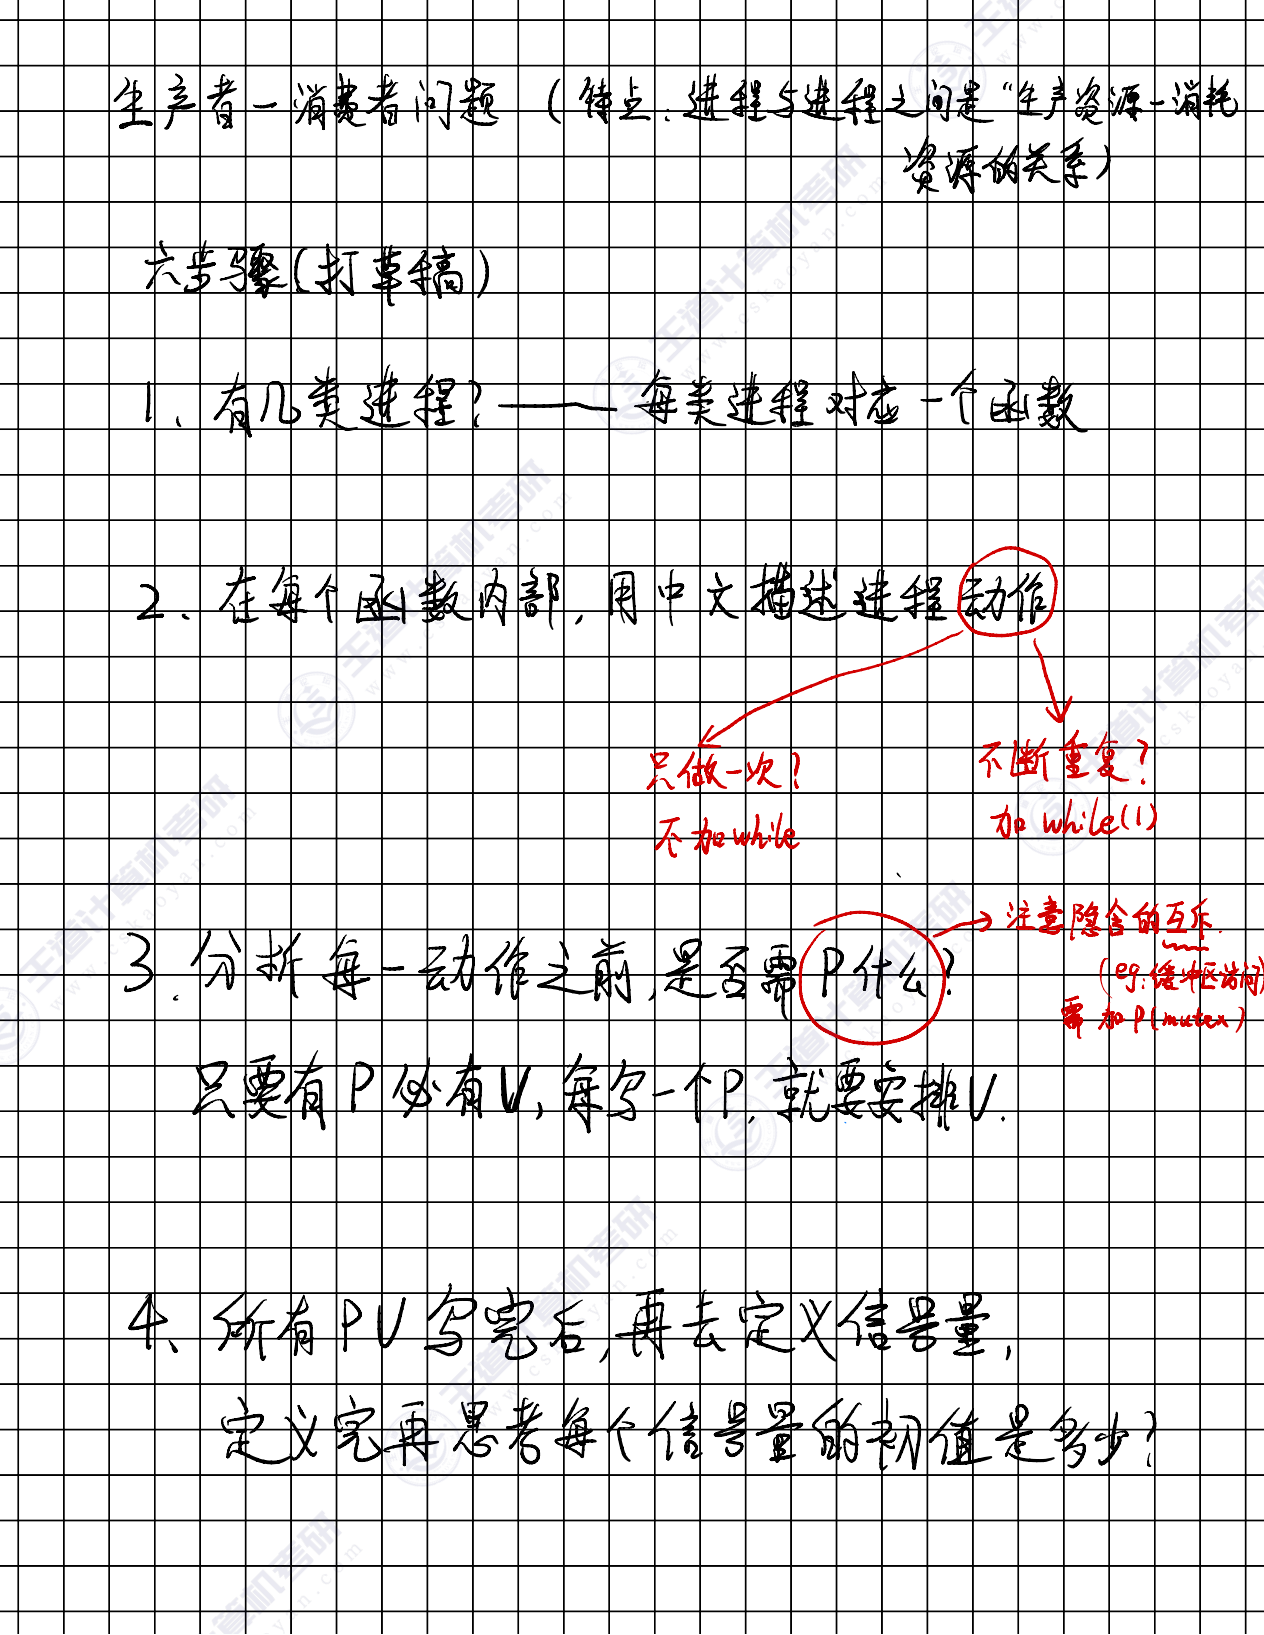 生产者一消费者问题 (特点:进程与进程之间是“生产资源一消耗
资源的关系)
六步骤(打草稿)
1、有几类进程?——每类进程对应一个函数
2、在每个函数内部,用中文描述进程动作
只做一次?
不加while
不断重复?
加while(1)
3.分析每一动作之前,是否需P什么?
→注意隐含的互斥.
(eg:缓冲区访问)
需加P(mutex)
只要有P必有V,每写一个P,就要安排V.
4、所有PV写完后,再去定义信号量,
定义完再思考每个信号量的初值是多少?
王道计算机考研
www.cskaoyan.com